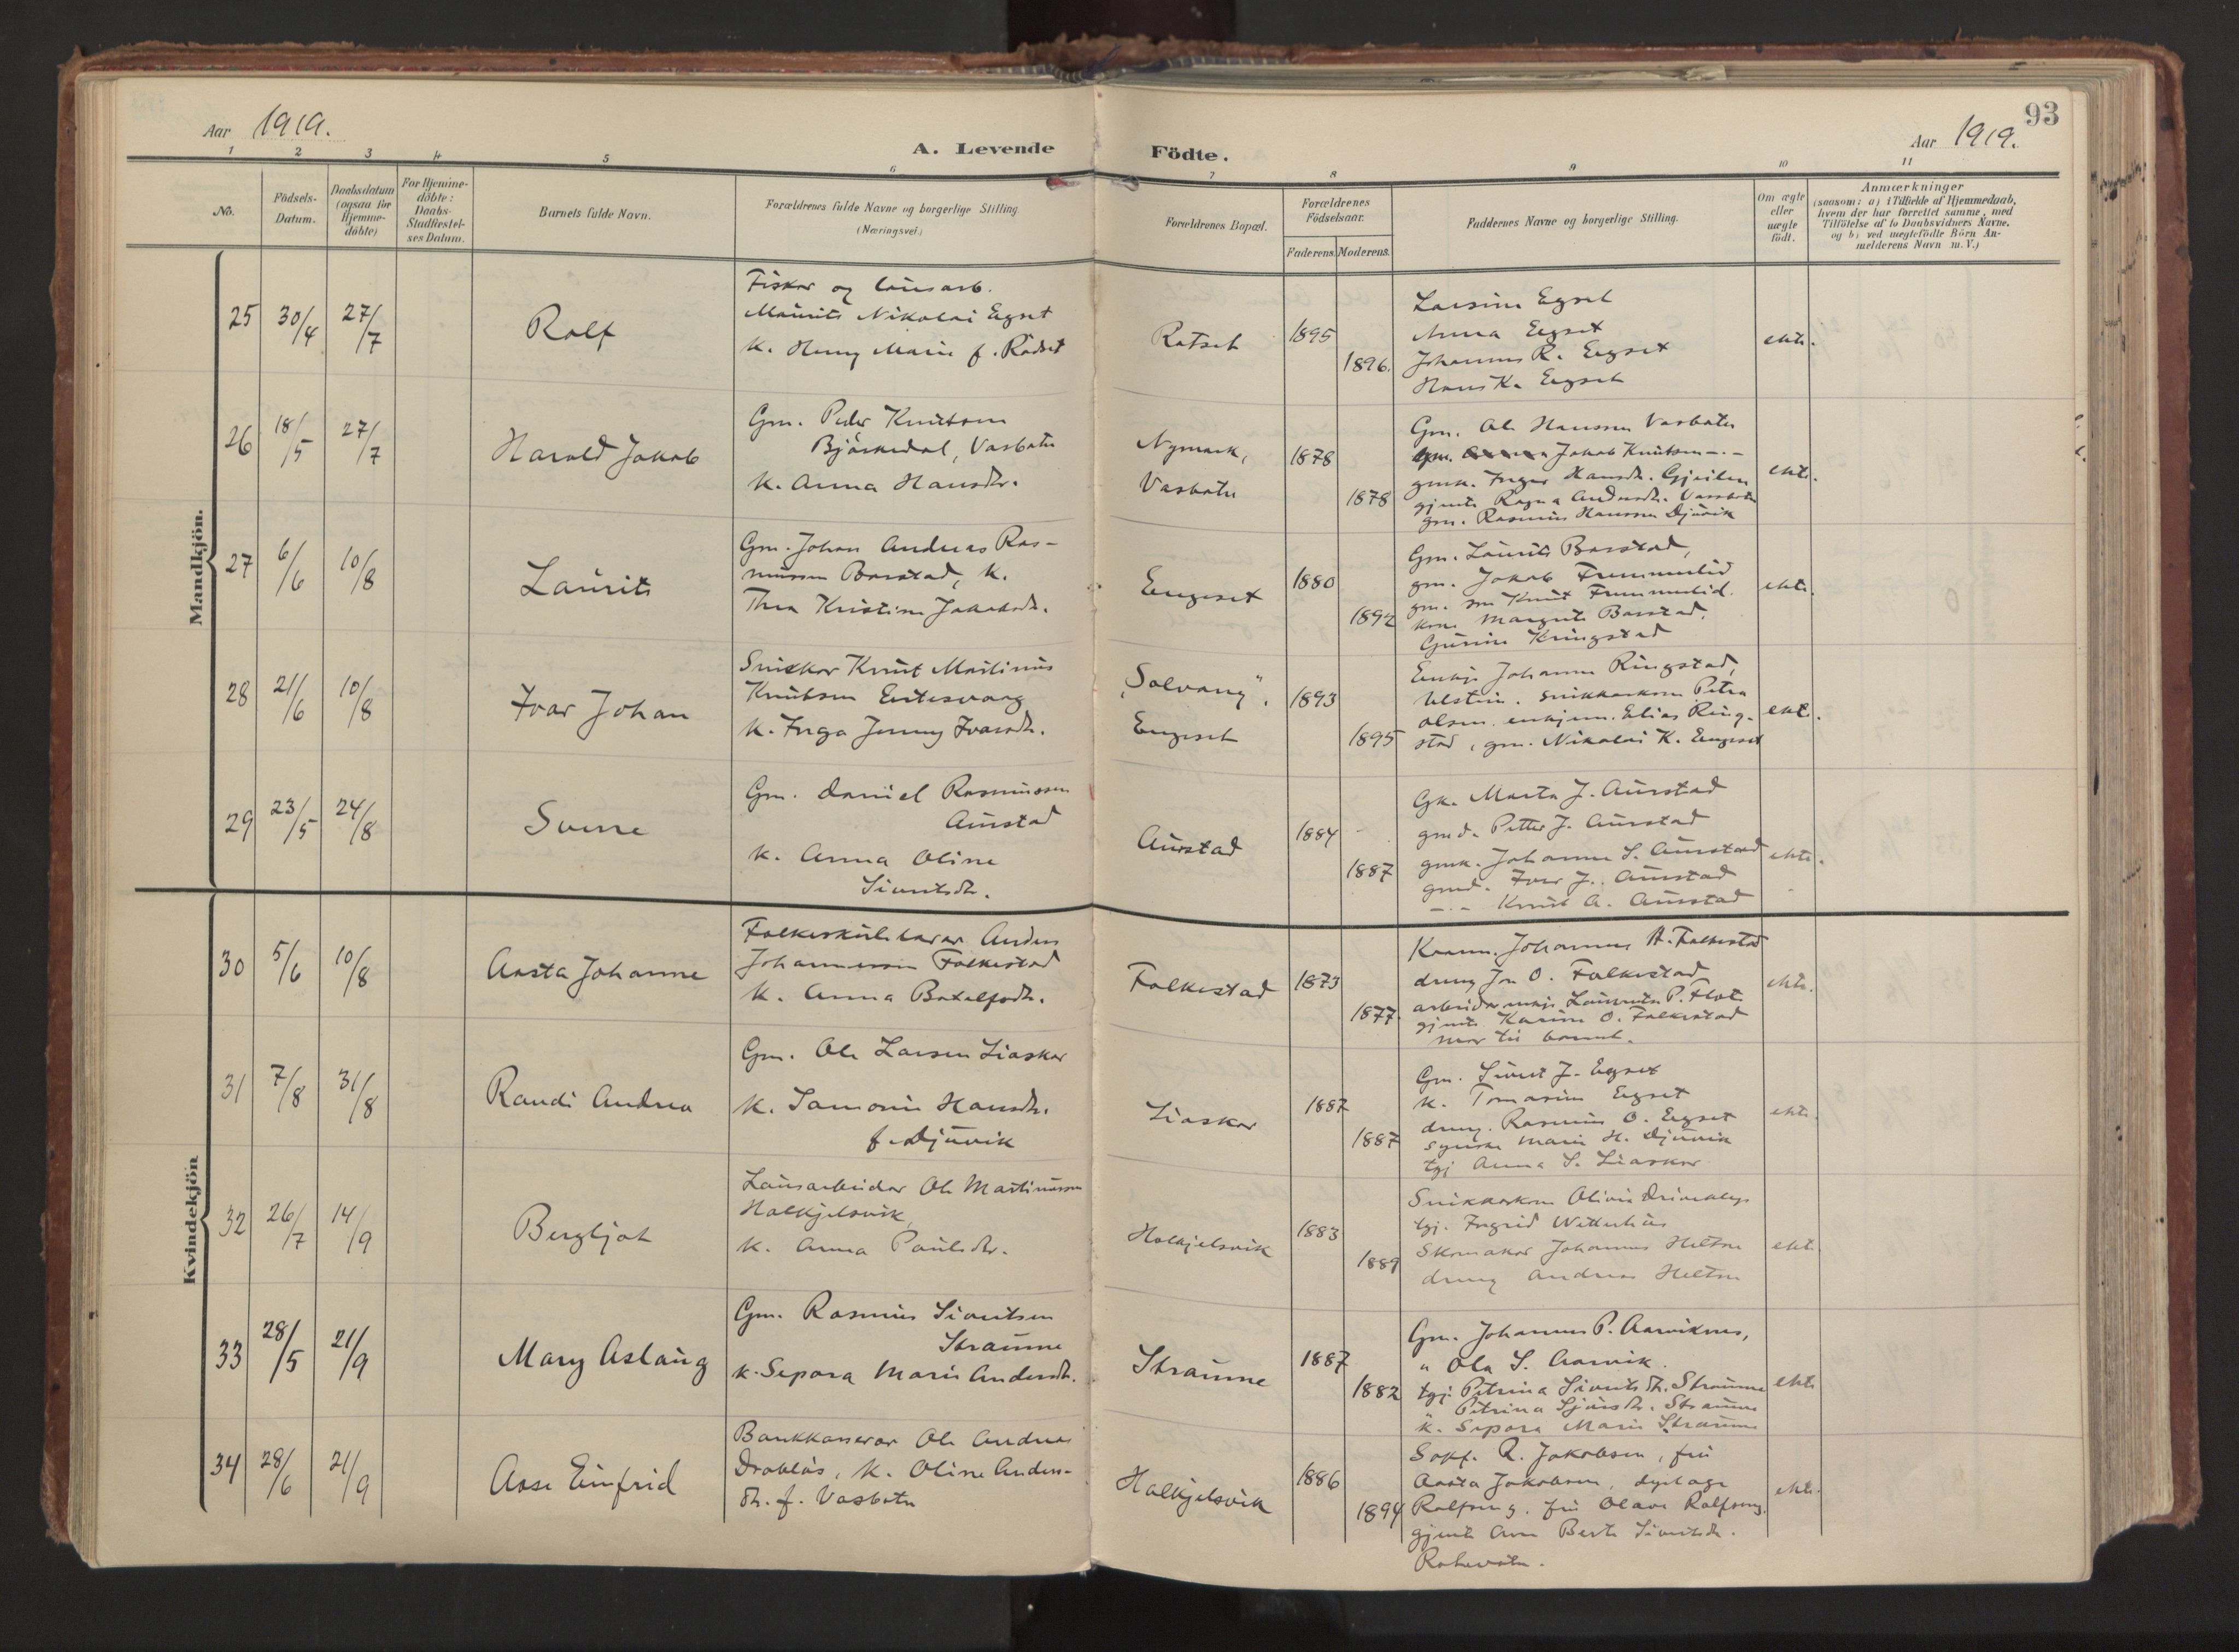 93
Aar 1919.
A. Levende Födte.
Aar 1919.
1 2 3 4 5 6 7 8 9 10 11
No.
Födsels-
Datum.
Daabsdatum
(ogsaa for
Hjemme-
döbte)
For Hjemme-
döbte:
Daabs-
Stadfæstel-
ses Datum.
Barnets fulde Navn.
Forældrenes fulde Navne og borgerlige Stilling
(Næringsvei.)
Forældrenes Bopæl.
Forældrenes
Födselsaar.
Faderens. Moderens.
Faddernes Navne og borgerlige Stilling.
Om ægte
eller
uægte
födt.
Anmærkninger
(saasom: a) i Tilfælde af Hjemmedaab,
hvem der har forrettet samme, med
Tilföielse af to Daabsvidners Navne,
og b) ved uægtefödte Börn An-
melderens Navn m. V.)
Mandkjön.
25 30/4 27/7
Rolf
Fisker og lausarb.
Maurits Nikolai Egset
k. Henny Marie f. Rödset
Rotset
1895
1896.
Larsine Egset
Anna Egset
Johannes R. Egset
Hans K. Egset
ekte.
26 18/5 27/7
Harald Jakob
Gm. Peder Knutson
Björkedal, Vasbotn
k. Anna Hansdr.
Nymark,
Vasbotn
1878
1878
Gm. Ole Hanssen Vasbotn
gm. Jakob Knutsen -.-
gmk. Inger Hansdr. Gjeilen
gjente Ragna Andersdr. Vassbotn
gm. Rasmus Hanssen Djuvik
ekte.
27 6/6 10/8
Laurits
Gm. Johan Andreas Ras-
mussen Barstad, k.
Thea Kristine Jakobsdr.
Engeset
1880
1892
Gm. Laurits Barstad,
gm. Jakob Frammerlid
gm. Knut Frammerlid.
kone Margrete Barstad,
Gurine Kringstad
ekte.
28 21/6 10/8
Ivar Johan
Snekkar Knut Martinus
Knutsen
k. Inga Jenny Ivarsdr.
"Solvang".
Engeset
1893
1895
Enkje Johanne Ringstad,
Ulstein. Snikkarkone Petra
Olsen. enkjem. Elias Ring-
stad, gm. Nikolai K. Engeset
ekte.
29 23/5 24/8
Sverre
Gm. Daniel Rasmussen
Aurstad
k. Anna Oline
Sivertsdr.
Aurstad
1884
1887
Gk. Marta J. Aurstad
gmd. Petter J. Aurstad
gmk. Johanne S. Aurstad
gmd. Iver J. Aurstad
-.- Knut A. Aurstad
ekte.
Kvindekjön
30 5/6 10/8
Aasta Johanne
Folkeskulelærar Anders
Johannessen Folkestad
k. Anna Botolfsdr.
Folkestad
1873
1877.
Kaarm. Johannes A. Folkestad
dreng Jon O. Folkestad
arbeidar enkje Laurentse P. Flot
gjente Karine O. Folkestad
mor til barnet.
ekte.
31 7/8 31/8
Randi Andrea
Gm. Ole Larsen Liaskar
k. Samorine Hansdr.
f. Djuvik
Liaskar
1887
1887
Gm. Sivert J. Egset
k. Tomasine Egset
dreng. Rasmus O. Egset
Syerske Marie H. Djuvik
tgj Anna S. Liaskar
ekte.
32 26/7 14/9
Bergljot
Lausarbeidar Ole Martinussen
Halkjelsvik,
k. Anna Paulsdr.
Halkjelsvik
1883
1889
Snikkarkone Olivia
tgj. Ingrid Witterhus
Skomakar Johannes Heltne
dreng Andreas Heltne
ekte.
33 28/5 21/9
Mary Aslaug
Gm. Rasmus Sivertsen
Straume
k. Sepora Marie Andersdr.
Straume
1887
1882
Gm. Johannes P. Aarviknes,
" Ola S. Aarvik.
tgj. Petrina Sivertsdr. Straume
" Petrina Sjursdr. Straume
k. Sepora Marie Straume
ekte
34 28/6 21/9
Aase Einfrid
Bankkaserar Ole Andreas
Drabløs, k. Oline Anders-
dr. f. Vasbotn
Halkjelsvik
1886
1894
Sokf. R. Jakobsen, fru
Aasta Jakobsen, dyrlæge
Rolfseng. fru Olave Rolfseng.
gjente Ane Berte Sivertsdr.
Rotevatn.
ekte.